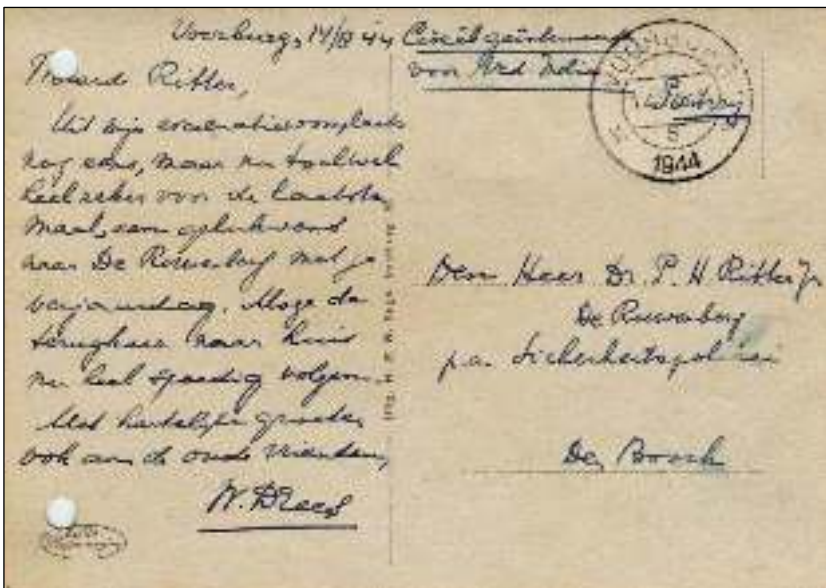 Voorburg, 14/8 44
Civielgeïnterneerde
voor Ned Indie
Waarde Ritter,
Uit mijn evacuatiewoonplaats
nog eens, maar nu toch wel
heel zeker voor de laatste
maal, een gelukwens
naar De Ruwenberg met je
verjaardag. Moge de
terugkeer naar huis
nu heel spoedig volgen.
Met hartelijke groeten,
ook aan de oude vrienden,
W. Drees
VOORBURG
5
1944
Den Heer Dr. P. H Ritter Jr
De Ruwenberg
p.a. Sicherheitspolizei
Den Bosch